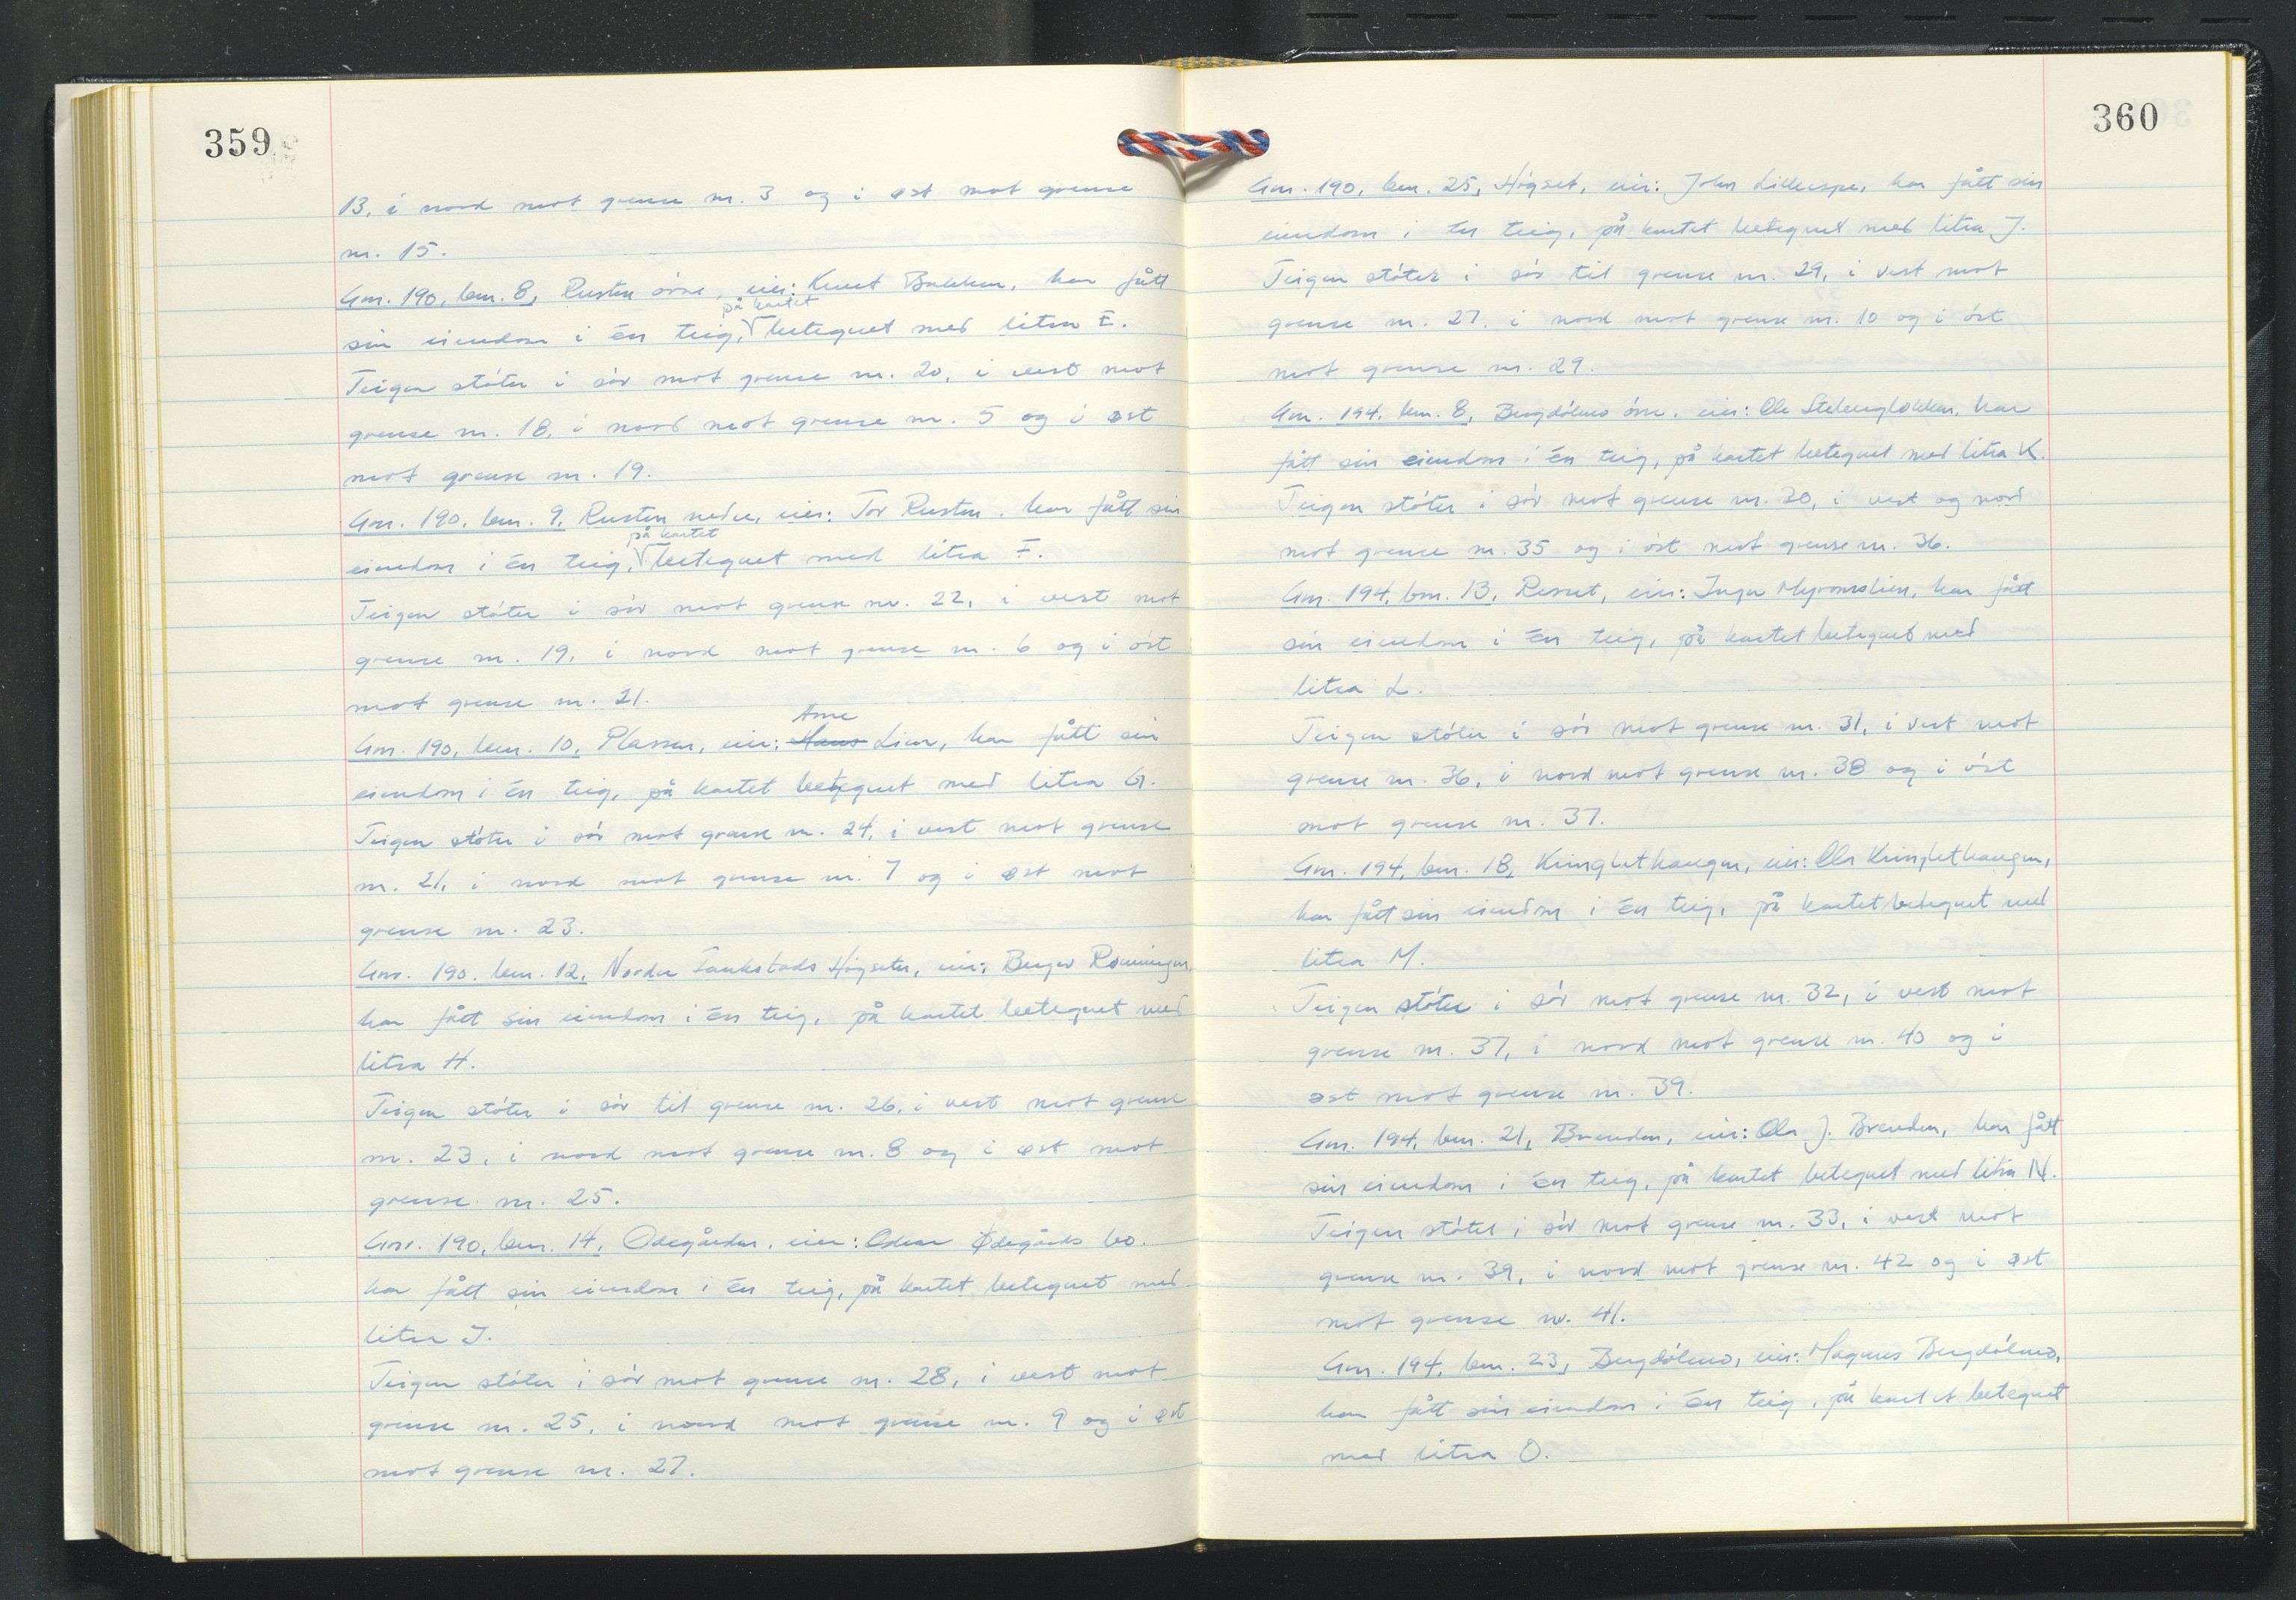 359
13, i nord mot grense nr. 3 og i øst mot grense
nr. 15.
Gnr. 190, bnr. 8, Rusten øvre, eier: Knut Bakken, har fått
på kartet
sin eiendom i én teig, betegnet med litra E.
Teigen støter i sør mot grense nr. 20, i vest mot
grense nr. 18, i nord mot grense nr. 5 og i øst
mot grense nr. 19.
Gnr. 190, bnr. 9, Rusten nedre, eier: Tor Rusten, har fått sin
på kartet
eiendom i én teig, betegnet med litra F.
Teigen støter i sør mot grense nr. 22, i vest mot
grense nr. 19, i nord mot grense nr. 6 og i øst
mot grense nr. 21.
Arne
Gnr. 190, bnr. 10, Plassen, eier: Hans Lien, har fått sin
eiendom i én teig, på kartet betegnet med litra G.
Teigen støter i sør mot grense nr. 24, i vest mot grense
nr. 21, i nord mot grense nr. 7 og i øst mot
grense nr. 23.
Gnr. 190, bnr. 12, Nordre Taukstads Høgseter, eier: Birger Rønningen,
har fått sin eiendom i én teig, på kartet betegnet med
litra H.
Teigen støter i sør til grense nr. 26, i vest mot grense
nr. 23, i nord mot grense nr. 8 og i øst mot
grense nr. 25.
Gnr. 190, bnr. 14, Ødegården, eier: Odem Ødegårds bo.
har fått sin eiendom i én teig, på kartet betegnet med
litra I.
Teigen støter i sør mot grense nr. 28, i vest mot
grense nr. 25, i nord mot grense nr. 9 og i øst
mot grense nr. 27.
360
Gnr. 190, bnr. 25, Høgset, eier: John Lillerspe, har fått sin
eiendom i én teig, på kartet betegnet med litra J.
Teigen støter i sør til grense nr. 29, i vest mot
grense nr. 27, i nord mot grense nr. 10 og i øst
mot grense nr. 29.
Gnr. 194, bnr. 8, Bergdølmo øvre, eier: Ole Stebergløkken, har
fått sin eiendom i én teig, på kartet betegnet med litra K.
Teigen støter i sør mot grense nr. 30, i vest og nord
mot grense nr. 35 og i øst mot grense nr. 36.
Gnr. 194, bnr. 13, Resset, eier: Inga Myromslien, har fått
sin eiendom i én teig, på kartet betegnet med
litra L.
Teigen støter i sør mot grense nr. 31, i vest mot
grense nr. 36, i nord mot grense nr. 38 og i øst
mot grense nr. 37.
Gnr. 194, bnr. 18, Kringlethaugen, eier: Ola Kringlethaugen,
har fått sin eiendom i én teig, på kartet betegnet med
litra M.
Teigen støter i sør mot grense nr. 32, i vest mot
grense nr. 37, i nord mot grense nr. 40 og i
øst mot grense nr. 39.
Gnr. 194, bnr. 21, Brenden, eier: Ola J. Brenden, har fått
sin eiendom i én teig, på kartet betegnet med litra N.
Teigen støter i sør mot grense nr. 33, i vest mot
grense nr. 39, i nord mot grense nr. 42 og i øst
mot grense nr. 41.
Gnr. 194, bnr. 23, Bergdølmo, eier: Magnus Bergdølmo,
har fått sin eiendom i én teig, på kartet betegnet
med litra O.